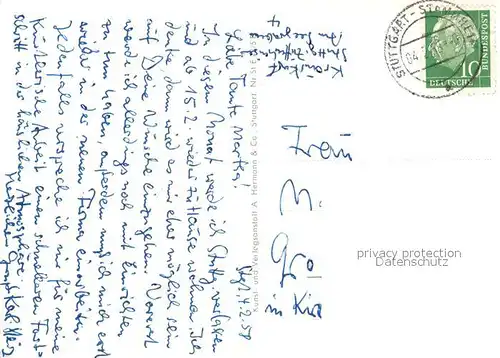 Stgt 4.2.58
Liebe Tante Martha!
In diesem Monat werde ich Stuttg. verlassen
und ab 15.2. wieder zu Hause wohnen. Ich
denke, dann wird es mir eher möglich sein
auf Deine Wünsche einzugehen. Vorerst
werde ich allerdings noch mit Einrichten
zu tun haben, außerdem muß ich mich erst
wieder in der neuen Firma einarbeiten.
Jedenfalls verspreche ich mir für meine
künstlerische Arbeit einen schnelleren Fort-
schritt in der häuslichen Atmosphäre.
Herzlichen Gruß Karl Heinz
Kunst- und Verlagsanstalt A. Hermann & Co., Stuttgart
Stuttg. Zuffenhsn
4
STUTTGART-STAMMHEIM
DEUTSCHE
BUNDESPOST
10
Frau
M.
in
privacy protection
Datenschutz